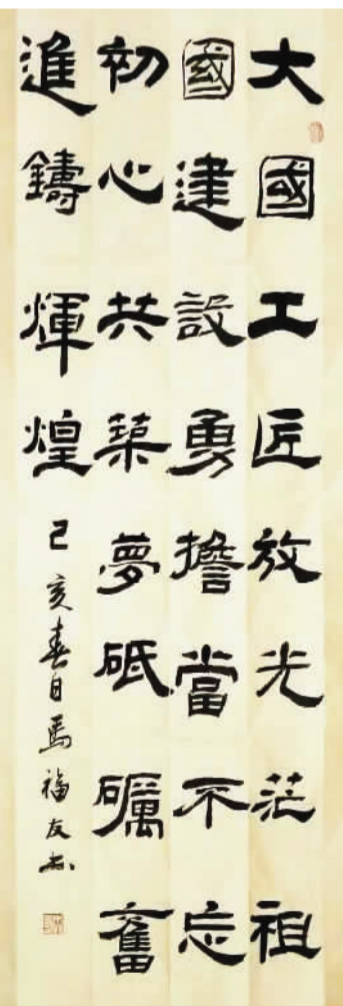 大國工匠放光茫祖
國建設勇擔當不忘
初心共築夢砥礪奮
進鑄煇煌
己亥春日馬福友书